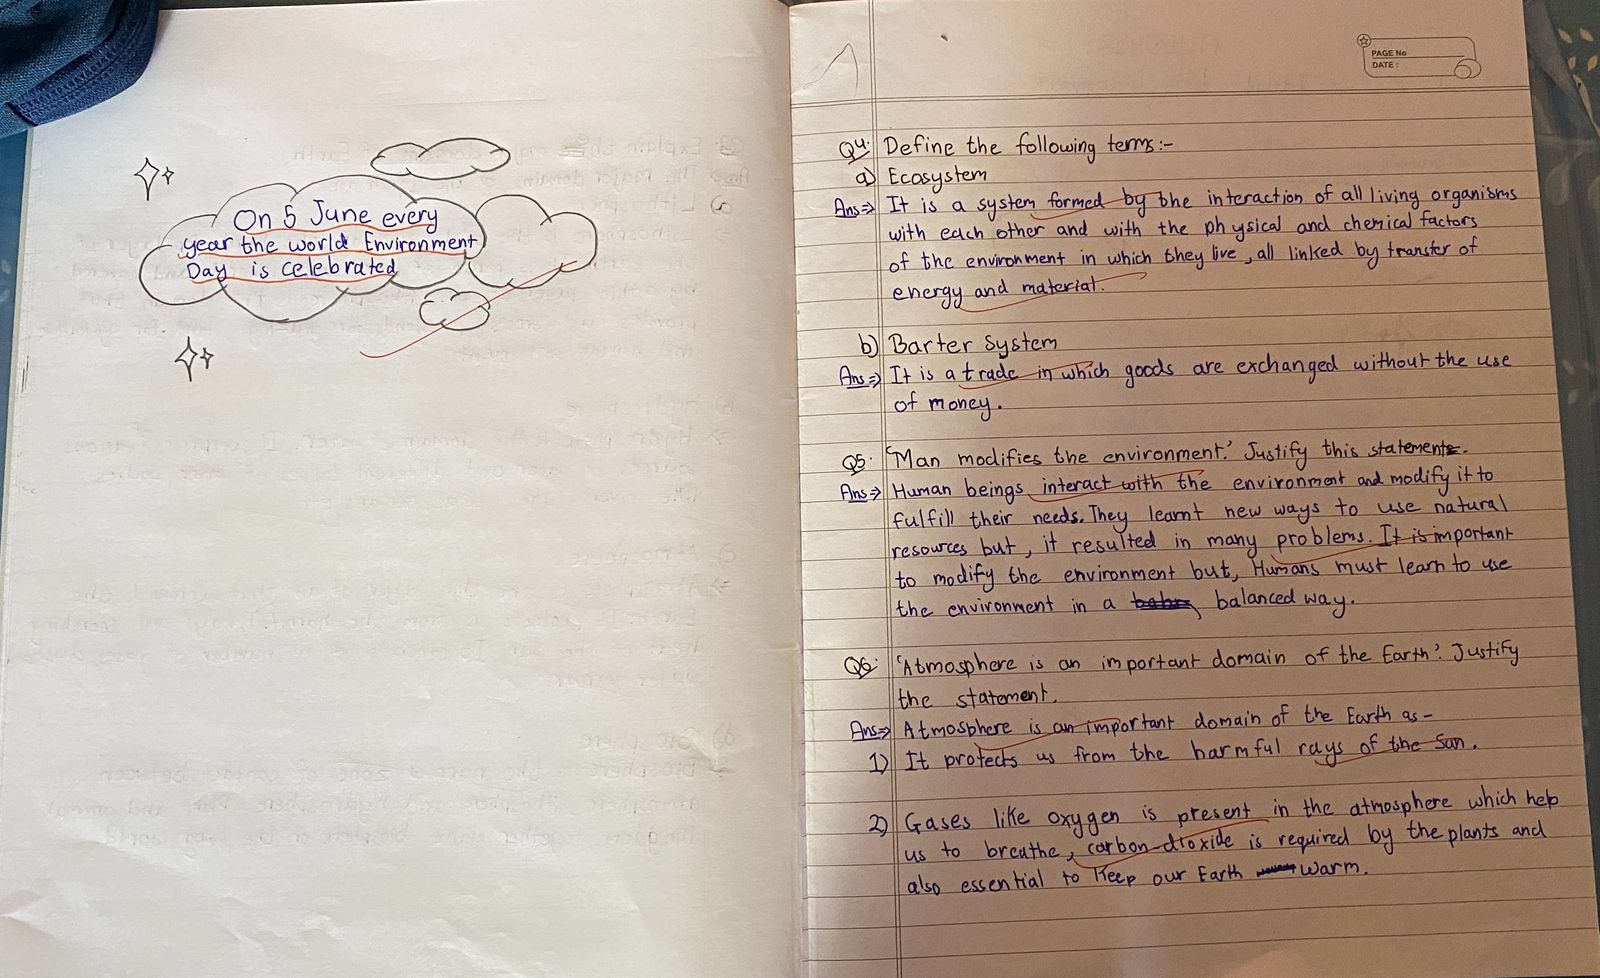 On 5 June every
year the world Environment
Day is celebrated
PAGE No
DATE :
Q4. Define the following terms:-
a) Ecosystem
Ans⇒ It is a system formed by the interaction of all living organisms
with each other and with the physical and chemical factors
of the environment in which they live, all linked by transfer of
energy and material.
b) Barter System
Ans⇒ It is a trade in which goods are exchanged without the use
of money.
Q5. 'Man modifies the environment.' Justify this statement.
Ans⇒ Human beings interact with the environment and modify it to
fulfill their needs. They learnt new ways to use natural
resources but, it resulted in many problems. It is important
to modify the environment but, Humans must learn to use
the environment in a balanced way.
Q6. 'Atmosphere is an important domain of the Earth'. Justify
the statement.
Ans⇒ Atmosphere is an important domain of the Earth as -
1) It protects us from the harmful rays of the Sun.
2) Gases like oxygen is present in the atmosphere which help
us to breathe, carbon-dioxide is required by the plants and
also essential to keep our Earth warm.